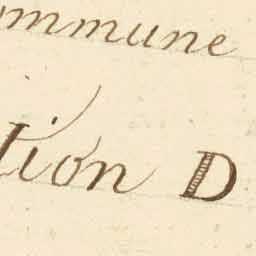 ommune
tion D